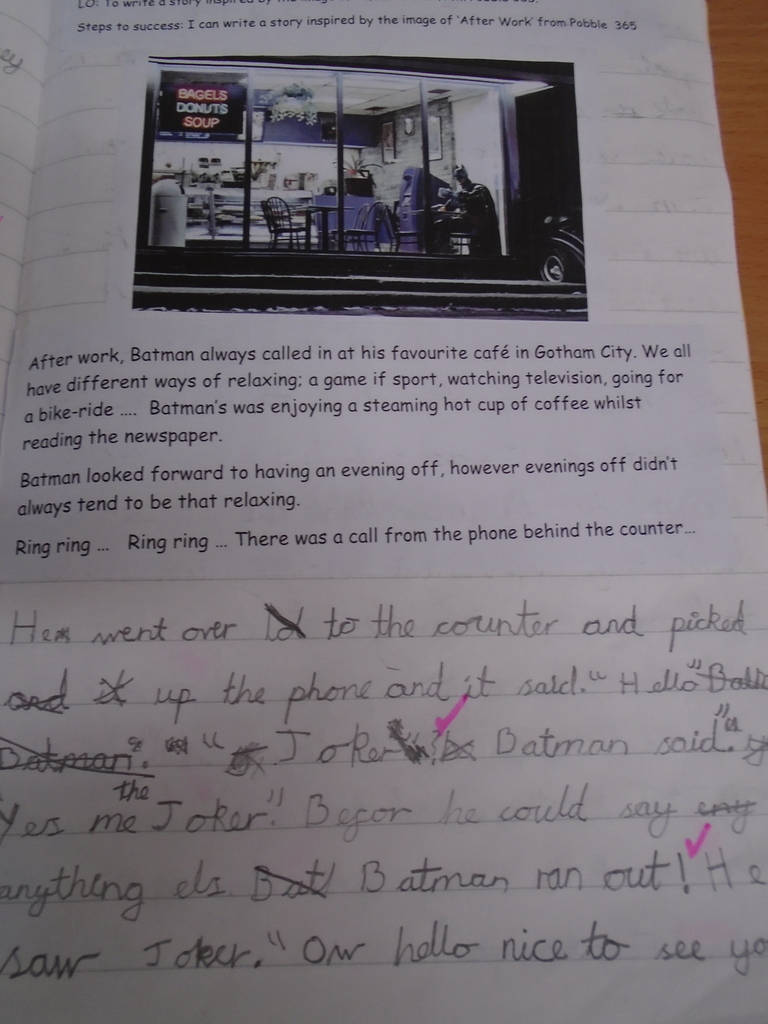 LO: To write a story inspired by the image
Steps to success: I can write a story inspired by the image of 'After Work' from Pobble 365
BAGELS
DONUTS
SOUP
After work, Batman always called in at his favourite café in Gotham City. We all
have different ways of relaxing; a game if sport, watching television, going for
a bike-ride .... Batman's was enjoying a steaming hot cup of coffee whilst
reading the newspaper.
Batman looked forward to having an evening off, however evenings off didn't
always tend to be that relaxing.
Ring ring ... Ring ring ... There was a call from the phone behind the counter...
He went over to the counter and picked
up the phone and it said." Hello"
" Joker"? Batman said."
the
Yes me Joker". Befor he could say
anything els Batman ran out! He
saw Joker." Ow hello nice to see yo